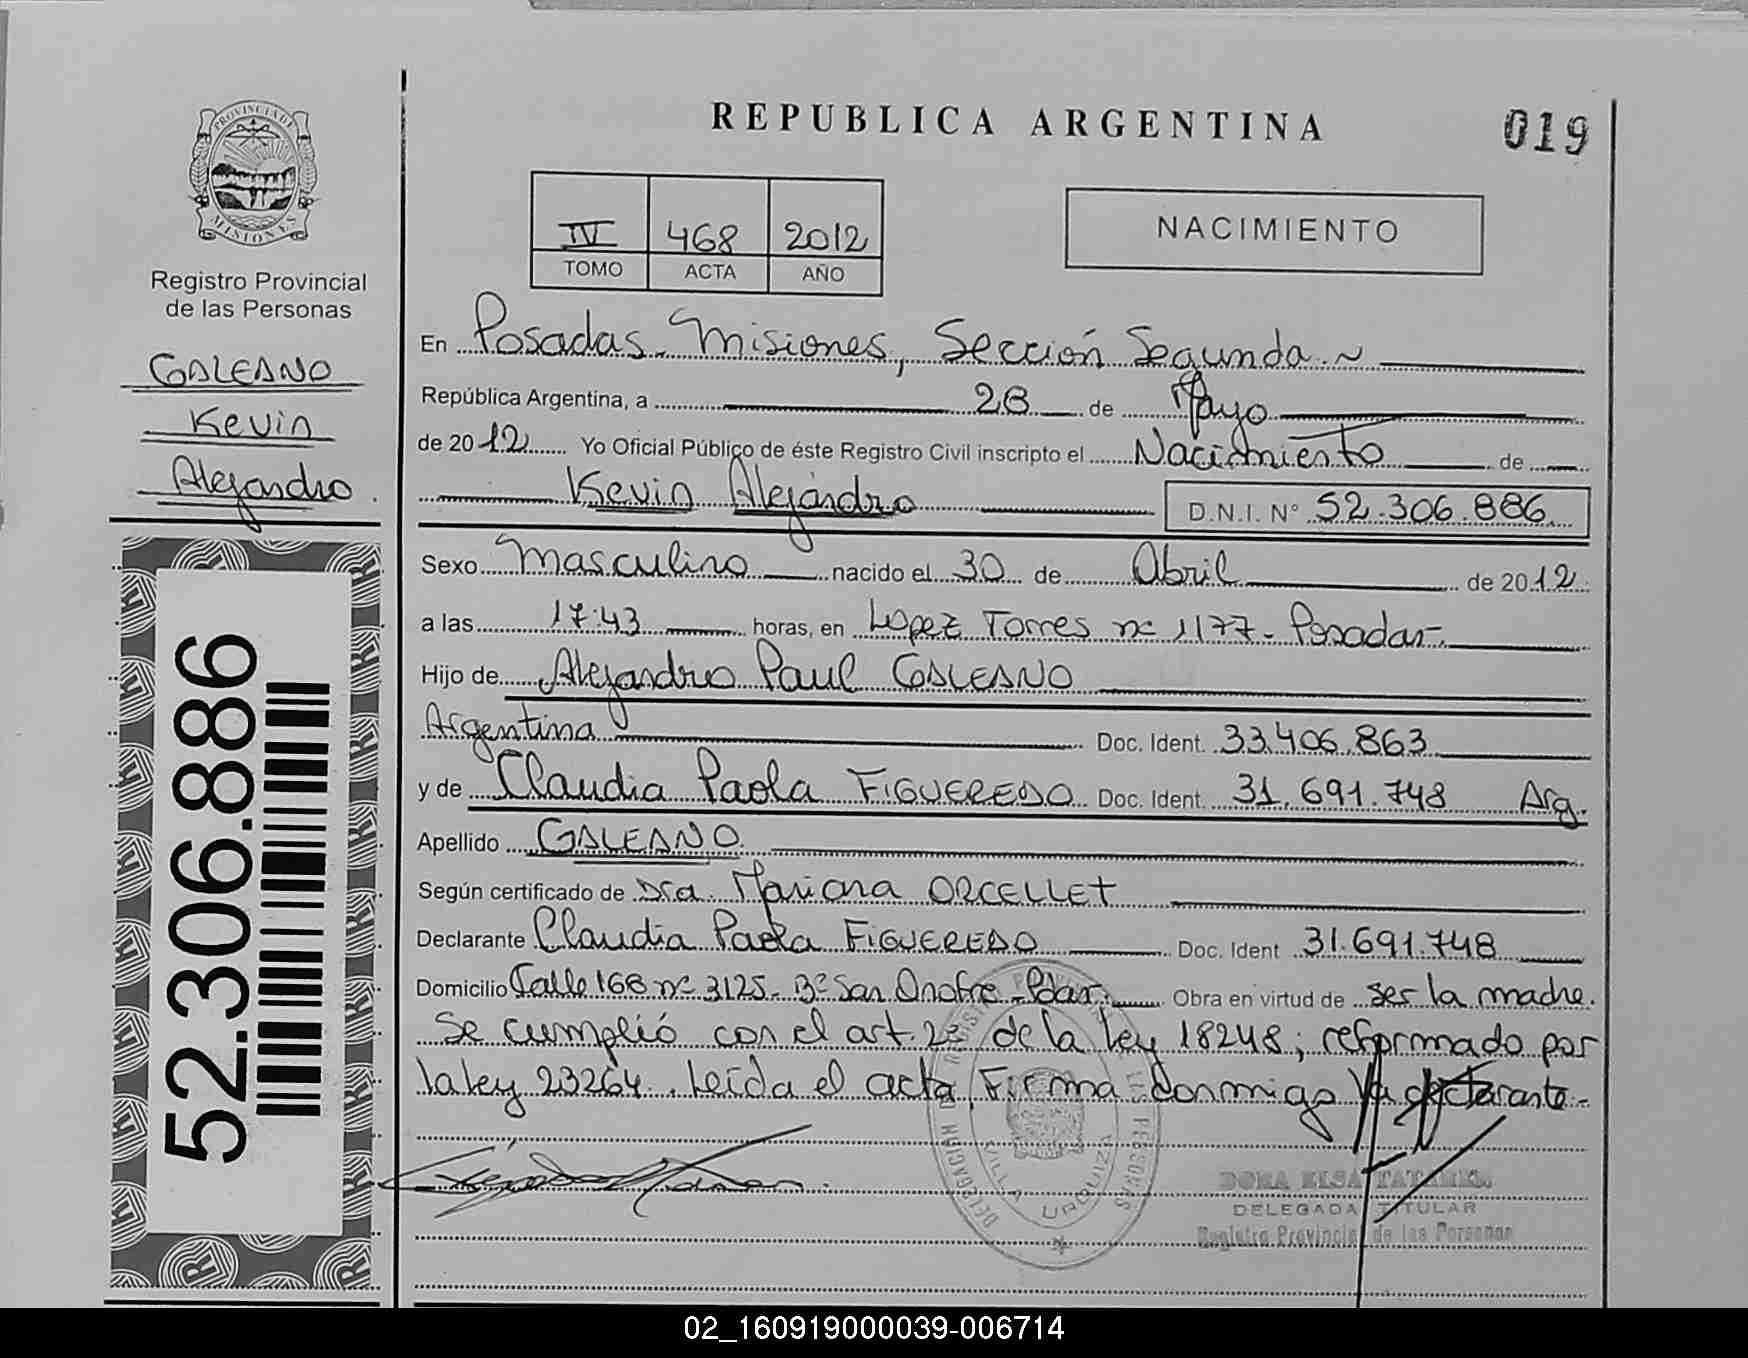 REPUBLICA ARGENTINA
019
PROVINCIA DE
MISIONES
Registro Provincial
de las Personas
GALEANO
Kevin
Alejandro.
52.306.886
IV 468 2012
TOMO ACTA AÑO
NACIMIENTO
En Posadas - Misiones, Sección Segunda.~
República Argentina, a 28 de Mayo
de 2012 Yo Oficial Público de éste Registro Civil inscripto el Nacimiento de
Kevin Alejandro D.N.I. N° 52.306.886
Sexo Masculino nacido el 30 de Abril de 2012
a las 17:43 horas, en López Torres nº 1177 - Posadas -
Hijo de Alejandro Paul GALEANO
Argentina Doc. Ident. 33.406.863
y de Claudia Paola FIGUEREDO Doc. Ident. 31.691.748 Arg.
Apellido GALEANO
Según certificado de Dra. Mariana ORCELLET
Declarante Claudia Paola FIGUEREDO Doc. Ident 31.691.748
Domicilio Calle 168 nº 3125 - Bº San Onofre - Pdas. Obra en virtud de ser la madre.
Se cumplió con el art. 28 de la ley 18248; reformado por
la ley 23264. Leída el acta, Firma conmigo la declarante -
DELEGACION REGISTRO LAS PERSONAS
VILLA URQUIZA
DELEGADA TITULAR
Registro Provincial de las Personas
02_160919000039-006714